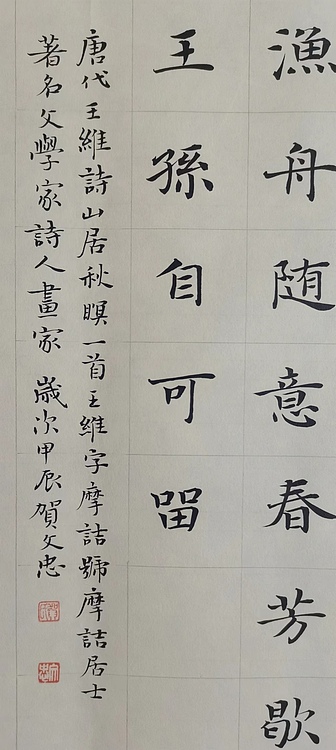 漁舟随意春芳歇
王孫自可留
唐代王維詩山居秋瞑一首王維字摩詰號摩詰居士
著名文學家詩人畫家 歲次甲辰賀文忠